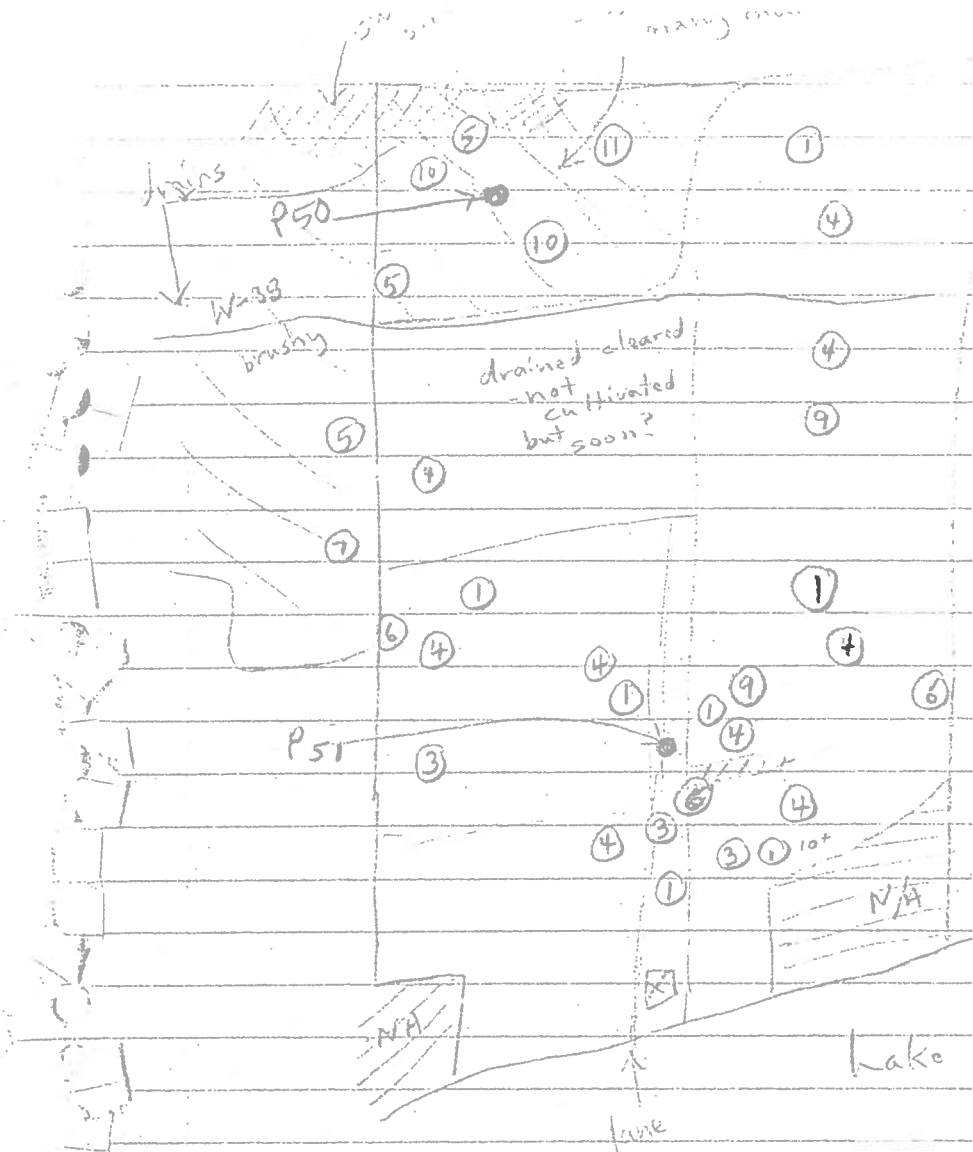 many
5
11
1
drains
10
P50
4
10
5
W-38
brushy
drained cleared
4
-not
cultivated
9
but soon?
5
4
7
1
1
6
4
4
4
9
6
1
1
4
P51
3
6
4
3
4
3
1
10+
1
N/A
X
N/A
Lake
lane